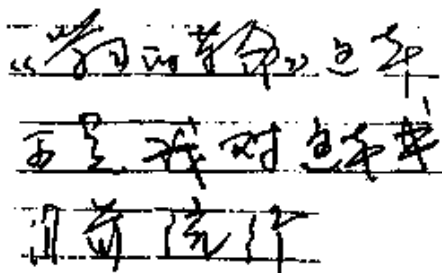 《学习的革命》这本
是我对这本书
目前流行